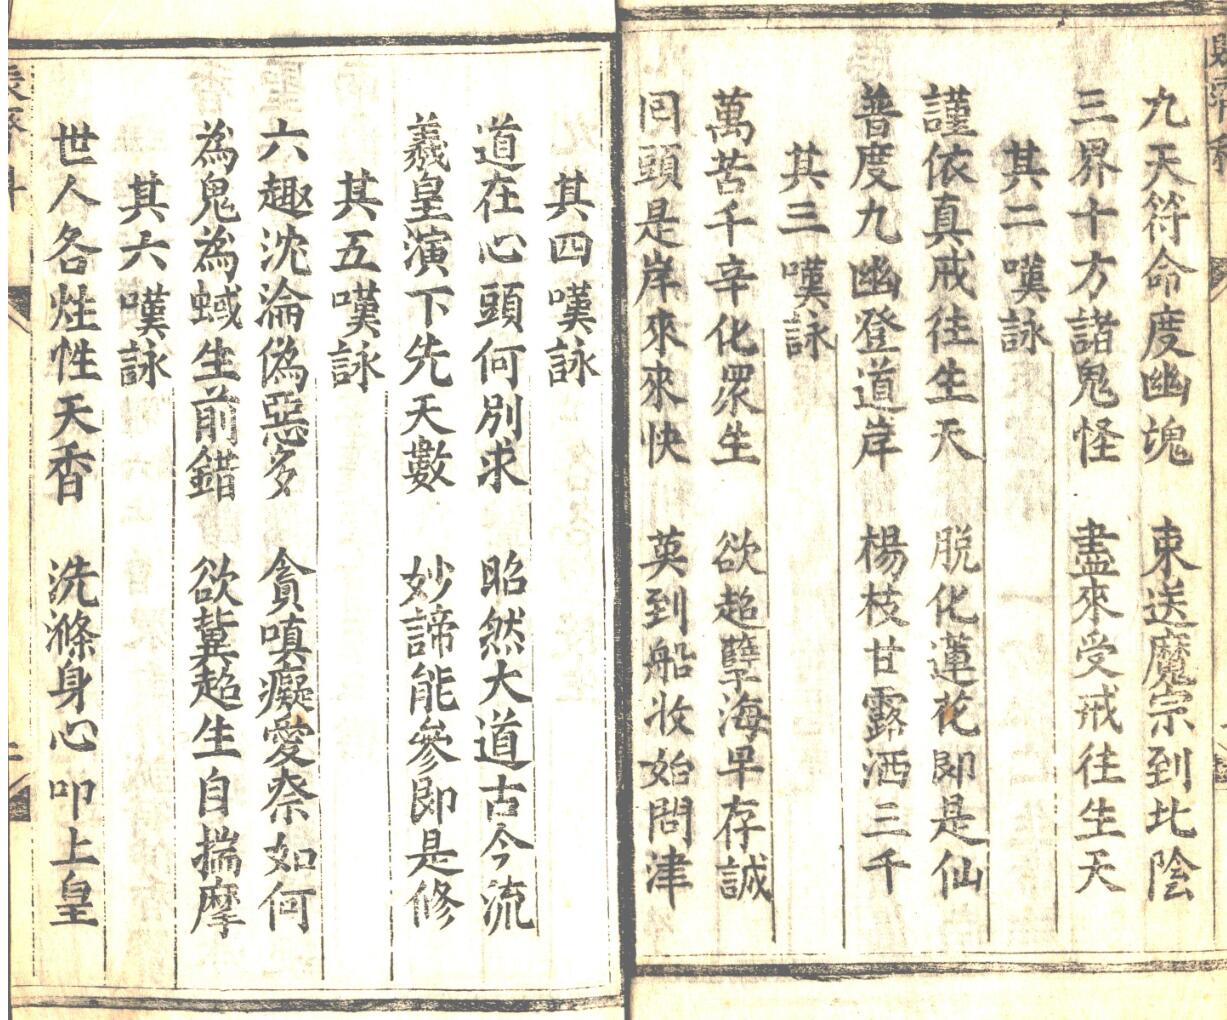 九天符命度幽魂　東送魔宗到北陰
三界十方諸鬼怪　盡來受戒往生天
其二嘆詠
謹依真戒往生天　脫化蓮花即是仙
普度九幽登道岸　楊枝甘露洒三千
其三嘆詠
萬苦千辛化眾生　欲超孽海早存誠
囘頭是岸來來快　英到船收始問津
其四嘆詠
道在心頭何別求　昭然大道古今流
羲皇演下先天數　妙諦能參即是修
其五嘆詠
六趣沈淪偽惡多　貪嗔癡愛奈如何
為鬼為蜮生前錯　欲冀超生自揣摩
其六嘆詠
世人各炷性天香　洗滌身心叩上皇